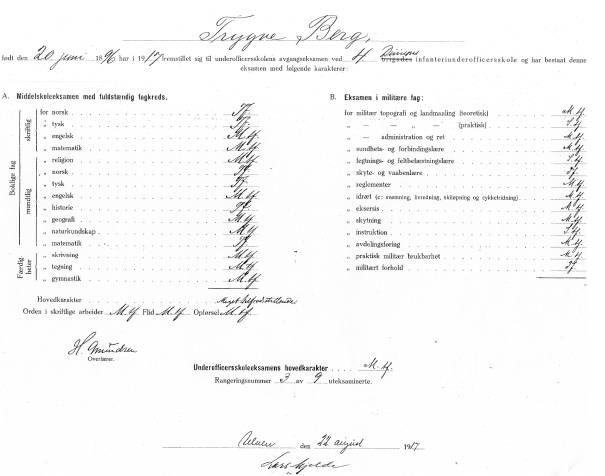 Trygve Berg,
født den 20 juni 1896 har i 1917 fremstillet sig til underofficersskolens avgangseksamen ved 4 Divisions brigades infanteriunderofficersskole og har bestaat denne
eksamen med følgende karakterer:
A. Middelskoleeksamen med fuldstændig fagkreds.
skriftlig
for norsk
„ tysk
„ engelsk M. tf.
„ matematik M. tf.
Boklige fag
mundtlig
„ religion M. tf.
„ norsk
„ tysk
„ engelsk M. tf.
„ historie
„ geografi M. tf.
„ naturkundskap M. tf.
„ matematik
Færdigheter
„ skrivning M. tf.
„ tegning M. tf.
„ gymnastik M. tf.
Hovedkarakter Meget tilfredsstillende
Orden i skriftlige arbeider M. tf. Flid M. tf. Opførsel M. tf.
H. Amundsen
Overlærer.
B. Eksamen i militære fag:
for militær topografi og landmaaling (teoretisk) M. tf.
„ — „ — „ — (praktisk)
„ — administration og ret M. tf.
„ sundhets- og forbindingslære M. tf.
„ fegtnings- og feltbefæstningslære
„ skyte- og vaabenlære
„ reglementer M. tf.
„ idræt (ɔ: svømning, livredning, skiløpning og cykkelridning) M. tf.
„ eksersis M. tf.
„ skytning M. tf.
„ instruktion
„ avdelingsføring M. tf.
„ praktisk militær brukbarhet M. tf.
„ militært forhold
Underofficersskoleeksamens hovedkarakter M. tf.
Rangeringsnummer 3 av 9 uteksaminerte.
den 22 august 1917
Lars Mjelde